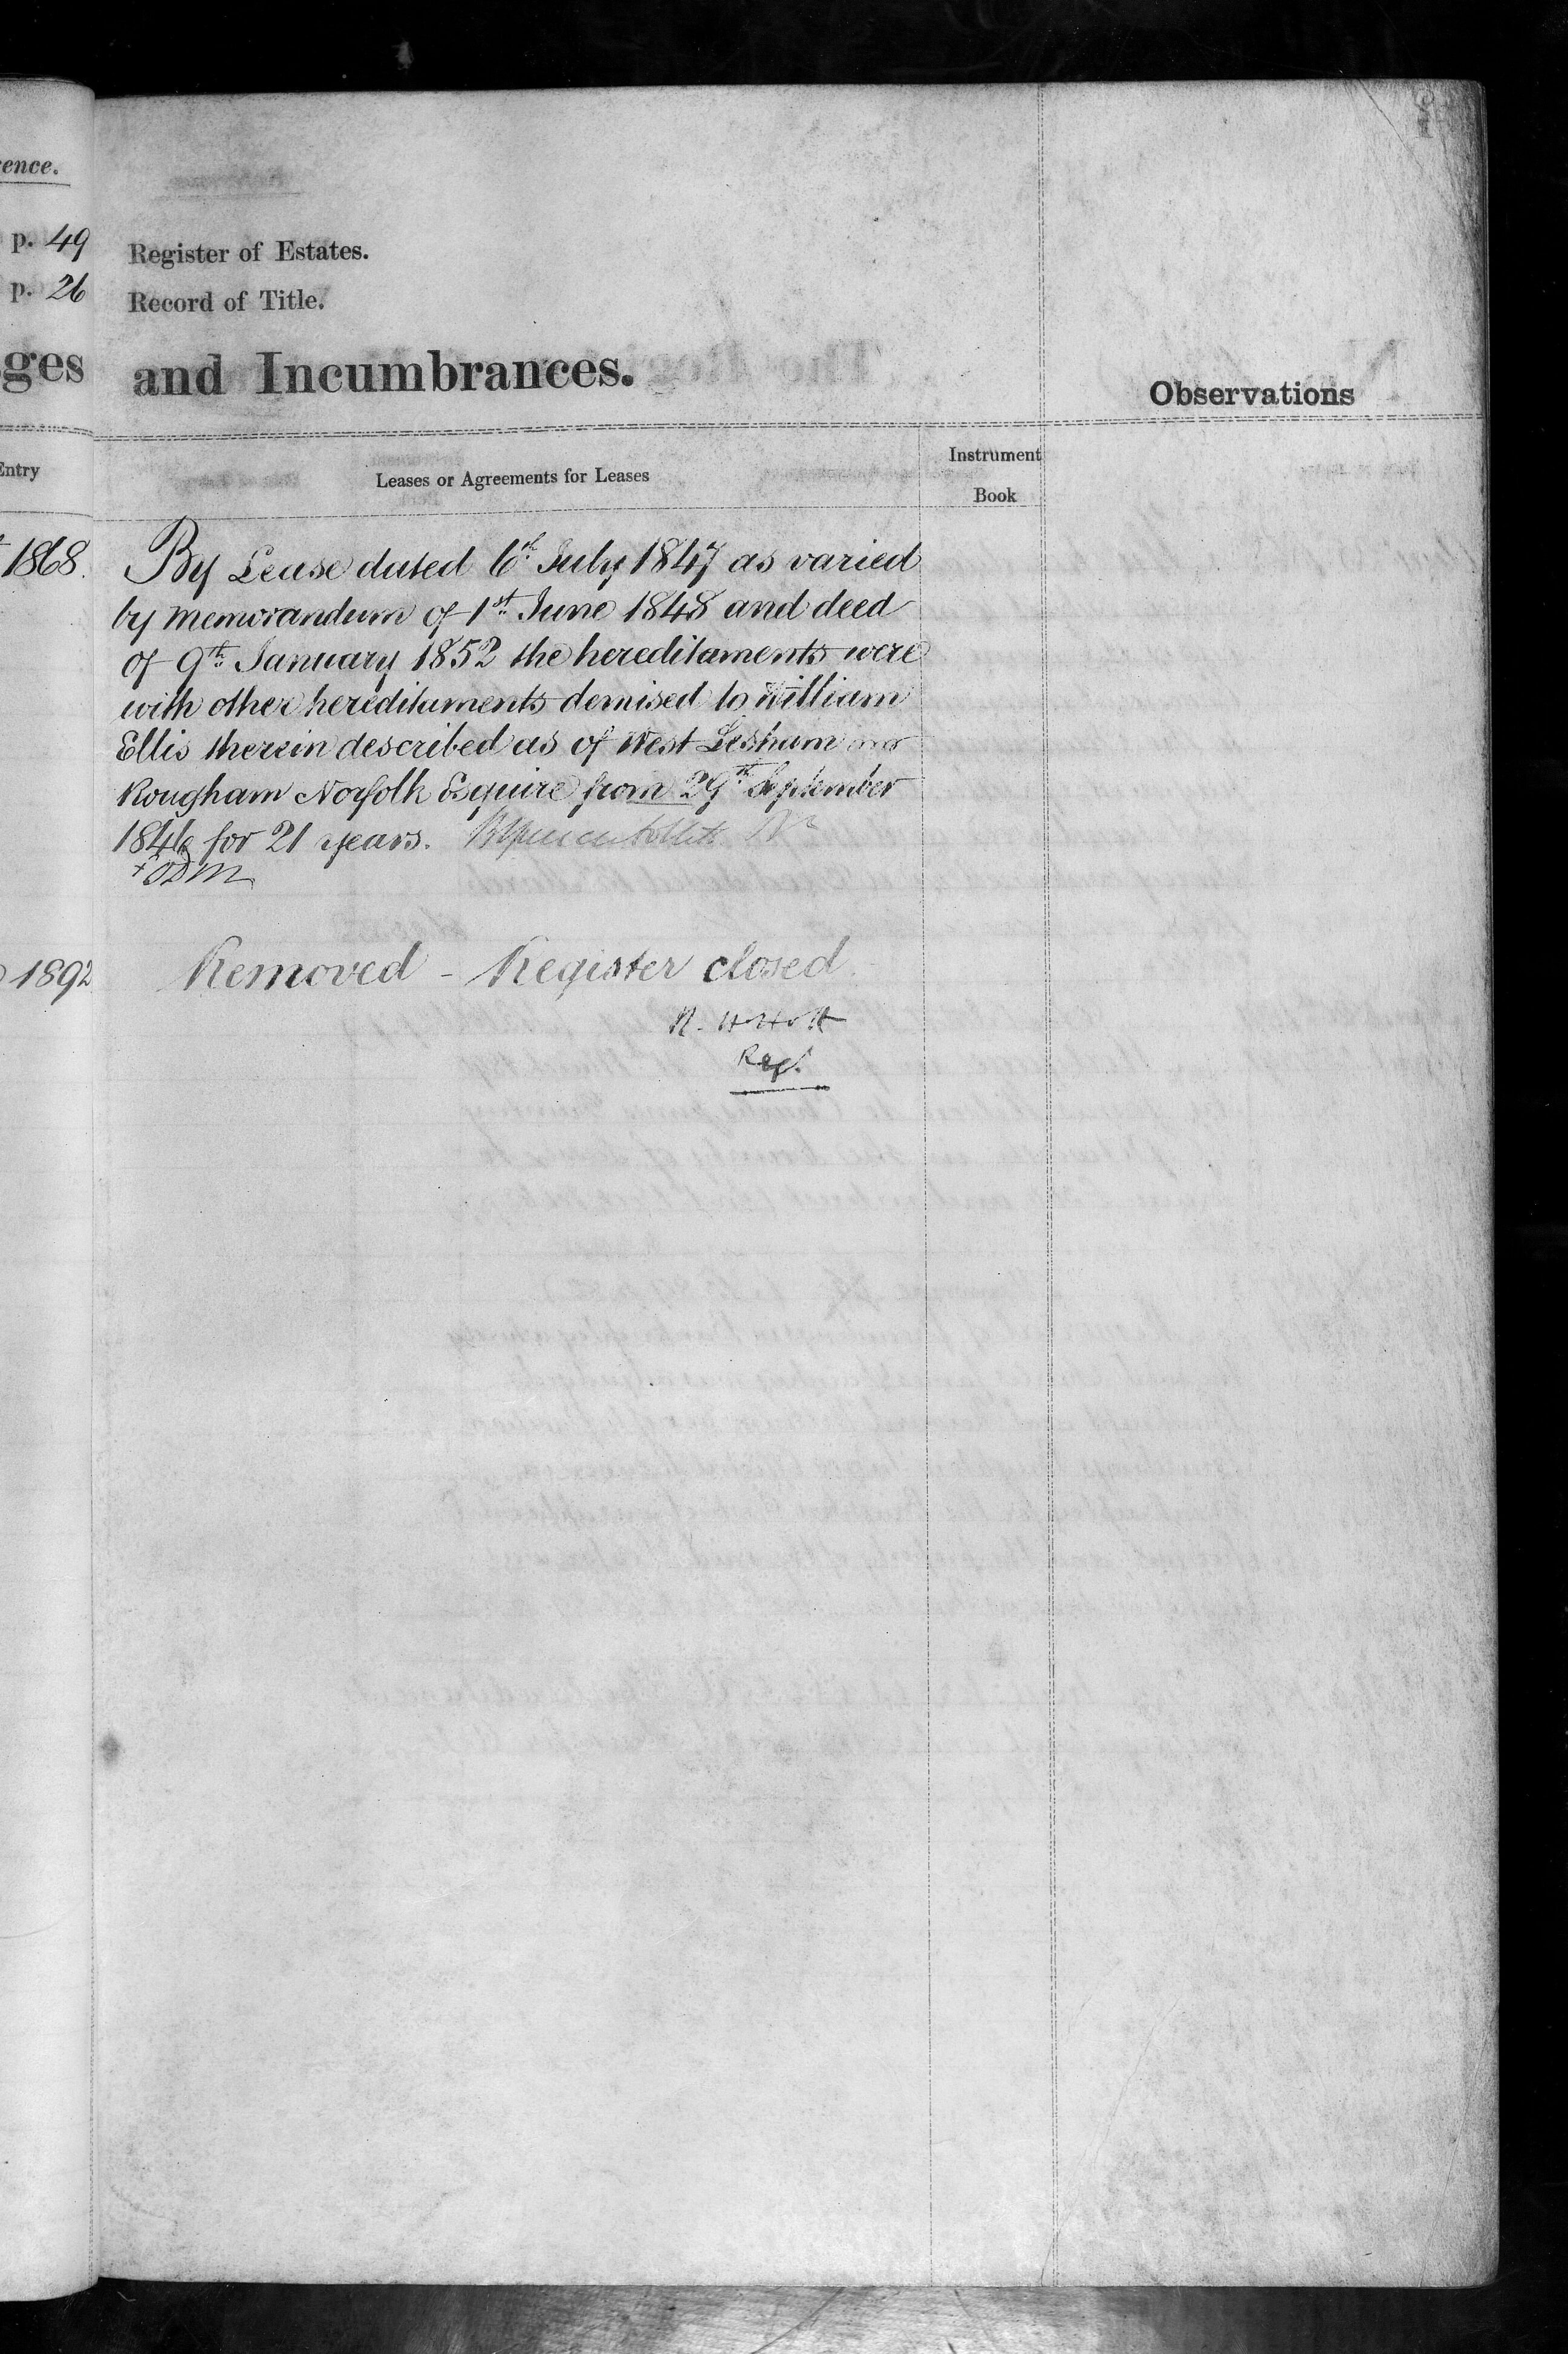 ence.
p. 49 Register of Estates.
p. 26 Record of Title.
ges and Incumbrances.
Observations
Entry
Leases or Agreements for Leases
Instrument
Book
1868. By Lease dated 6th July 1847 as varied
by memorandum of 1st June 1848 and deed
of 9th January 1852 the hereditaments were
with other hereditaments demised to William
Ellis therein described as of West Lexham and
Rougham Norfolk Esquire from 29th September
1846 for 21 years.
1892 Removed - Register closed.
Regr.